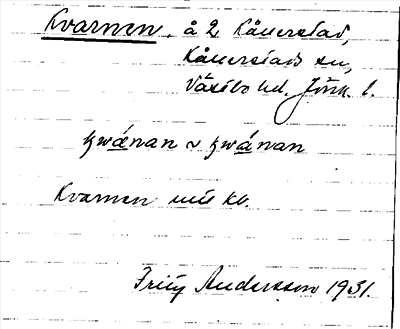 Kvarnen, å 2 Kållerstad,
Kållerstads sn,
Västbo hd. Jönk. l.
kwánan ~ kwánan
Kvarnen
Andersson 1931.